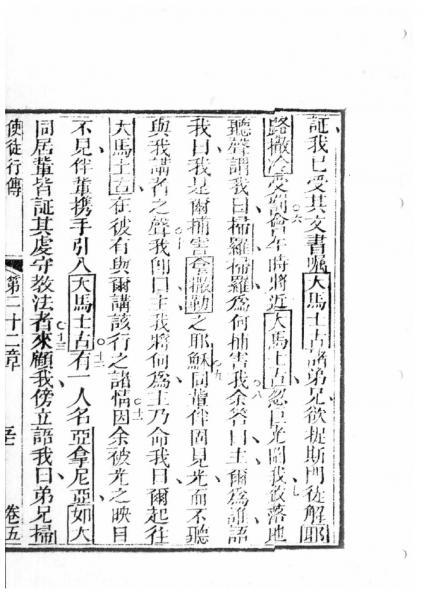 証我已受其文書囑大馬士古諸弟兄欲捉斯門徒解耶
路撒冷受罰會午時將近大馬士古忽巨光圍我
落地
聽聲謂我曰掃羅掃羅爲何捕害我余答曰主爾爲誰語
我曰我是爾捕害拿撒勒之耶穌同輩伴固見光而不聽
與我講者之聲我卽曰主我將何爲主乃命我曰爾起往
大馬士古在彼有與爾講該行之諸情因余被光之映目
不見伴輩携手引入大馬士古有一人名亞拿尼亞如大
同居輩皆証其虔守教法者來顧我傍立語我曰弟兄掃
使徒行傳 第二十二章 卷五